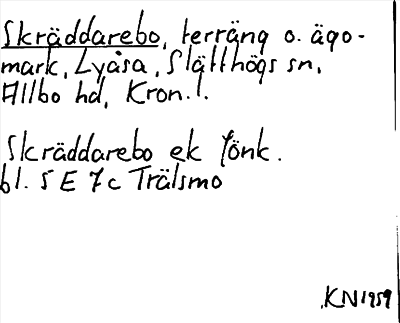 Skräddarebo, terräng o. ägo-
mark, Lyåsa, Slätthögs sn,
Allbo hd, Kron.l.
Skräddarebo ek Jönk.
bl. 5 E 7c Trälsmo
KN 1959